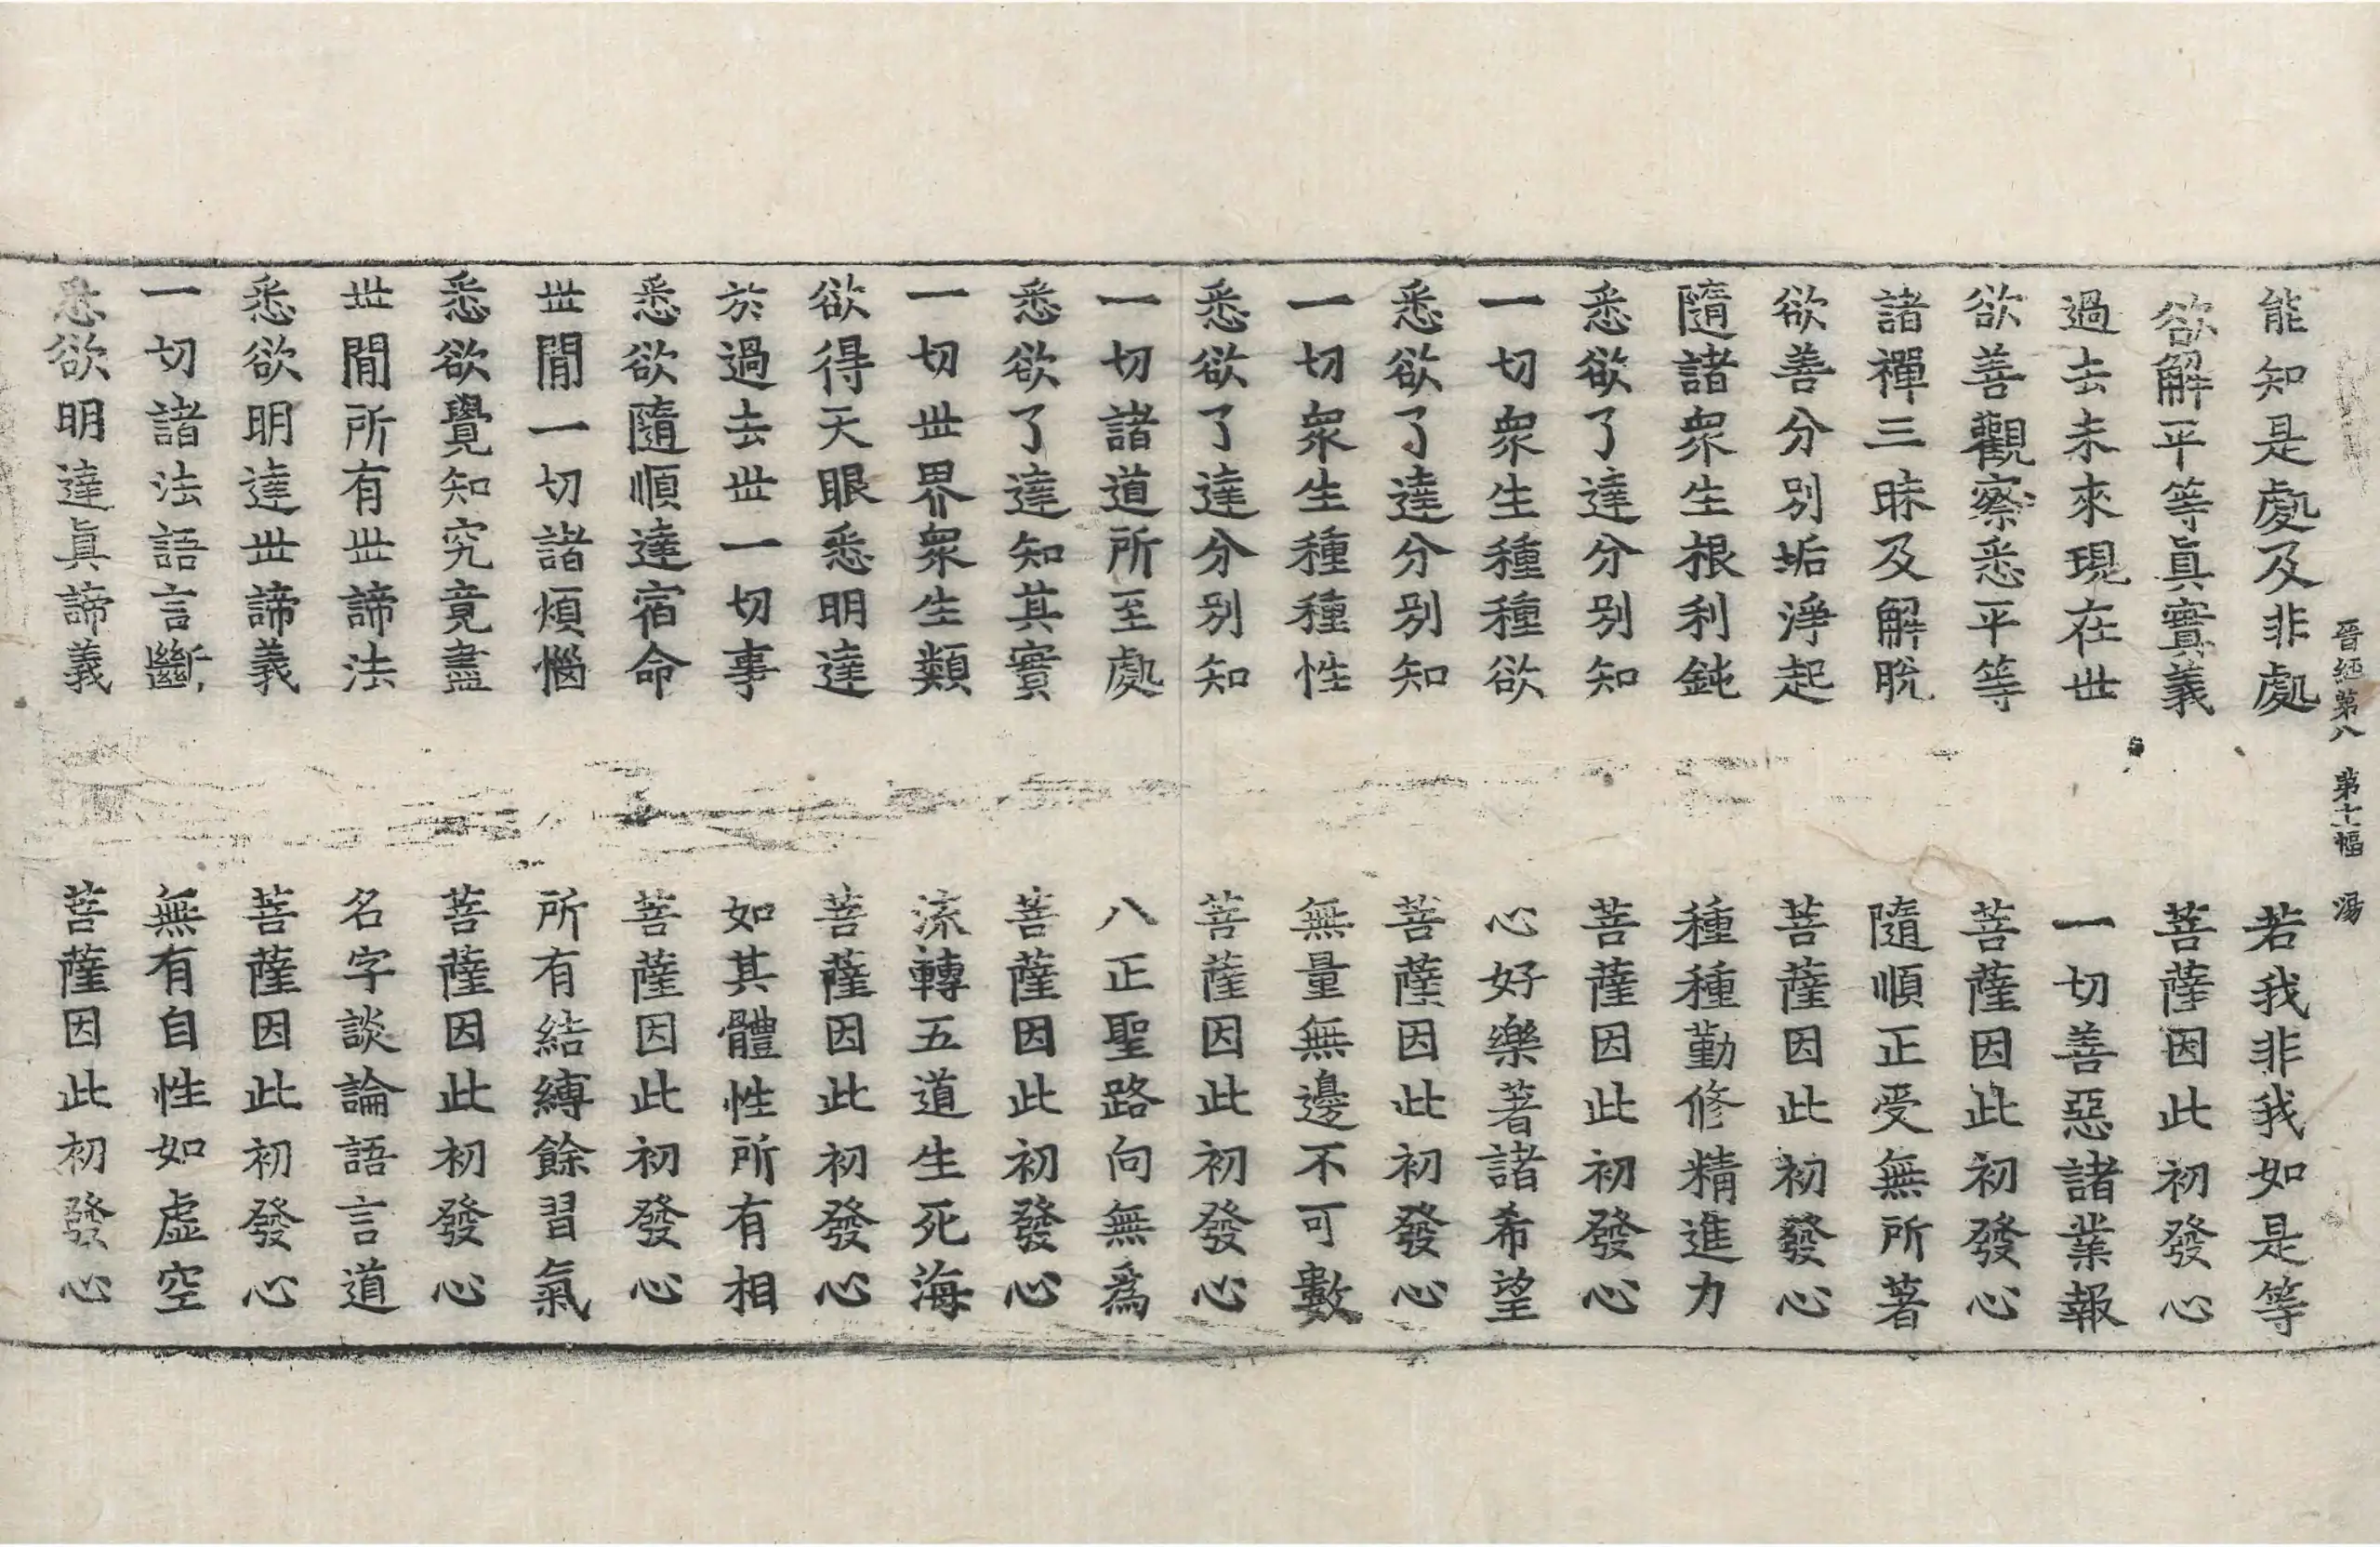 晉經第八　第十幅　湯
能知是處及非處　若我非我如是等
欲解平等眞實義　菩薩因此初發心
過去未來現在世　一切善惡諸業報
欲善觀察悉平等　菩薩因此初發心
諸禪三昧及解脫　隨順正受無所著
欲善分別垢淨起　菩薩因此初發心
隨諸衆生根利鈍　種種勤修精進力
悉欲了達分別知　菩薩因此初發心
一切衆生種種欲　心好樂著諸希望
悉欲了達分別知　菩薩因此初發心
一切衆生種種性　無量無邊不可數
悉欲了達分別知　菩薩因此初發心
一切諸道所至處　八正聖路向無爲
悉欲了達知其實　菩薩因此初發心
一切世界衆生類　流轉五道生死海
欲得天眼悉明達　菩薩因此初發心
於過去世一切事　如其體性所有相
悉欲隨順達宿命　菩薩因此初發心
世閒一切諸煩惱　所有結縛餘習氣
悉欲覺知究竟盡　菩薩因此初發心
世閒所有世諦法　名字談論語言道
悉欲明達世諦義　菩薩因此初發心
一切諸法語言斷　無有自性如虛空
悉欲明達眞諦義　菩薩因此初發心